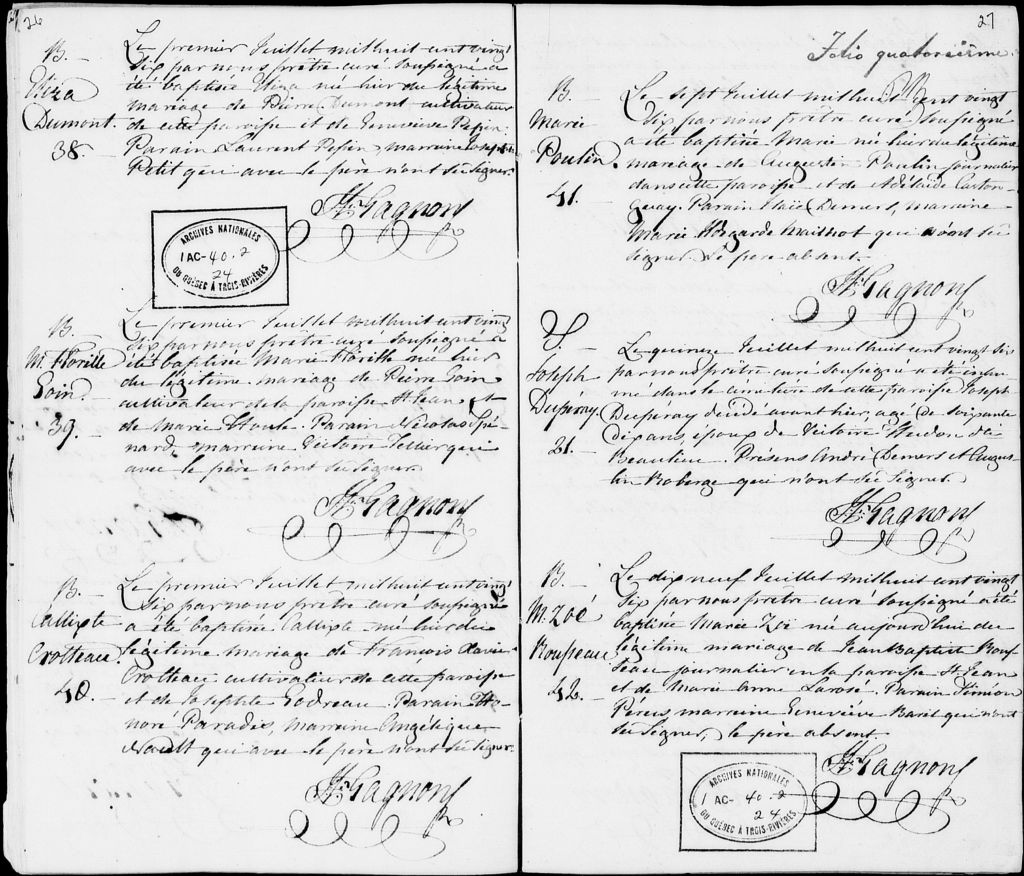 26
B.
Eliza
Dumont.
38.
Le premier Juillet mil huit cent vingt
six par nous prêtre curé soussigné a
été baptisée Eliza né hier du légitime
mariage de Pierre Dumont cultivateur
de cette paroisse et de Geneviève Pepin.
Parain Laurent Pepin, marraine
Petit qui avec le père n'ont su signer.
Gagnon
ARCHIVES NATIONALES
1 AC- 40.2
24
DU QUÉBEC À TROIS-RIVIÈRES
B.
M. Florille
Goin
39.
Le premier Juillet mil huit cent vingt
six par nous prêtre curé soussigné a
été baptisée Marie née hier
du légitime mariage de Pierre Goin
cultivateur de la paroisse St Jean et
de Marie Houle. Parain Nicolas Spé-
nard, marraine Victoire Tellier qui
avec le père n'ont su signer
Gagnon
B.
Callixte
Crotteau.
40.
Le premier Juillet mil huit cent vingt
six par nous prêtre curé soussigné
a été baptisée Callixte né hier du
légitime mariage de François Xavier
Crotteau cultivateur de cette paroisse
et de Josephte Godreau. Parain Ho-
noré Paradis, marraine Angélique
Nault qui avec le père n'ont su signer.
Gagnon
27
Folio quatorzième.
B.
Marie
Poulin.
41.
Le sept Juillet mil huit cent vingt
six par nous prêtre curé soussigné
a été baptisée Marie né hier du légitime
mariage de Augustin Poulin journalier
dans cette paroisse et de Adélaïde Caston-
guay. Parain Demers, marraine
Marie Mailhot qui n'ont su
signer. Le père absent.
Gagnon
S
Joseph
Duperay
21.
Le quinze Juillet mil huit cent vingt six
par nous prêtre curé soussigné a été inhu-
mé dans le cimetière de cette paroisse Joseph
Duperay décédé avant hier, agé de soixante
dix ans, époux de Victoire Hudon dit
Beaulieu. Présens André Demers et Augus-
tin Roberge qui n'ont su signer.
Gagnon
B.
M. Zoé
Rousseau
42.
Le dix neuf Juillet mil huit cent vingt
six par nous prêtre curé soussigné a été
baptisée Marie Zoé né aujourd'hui du
légitime mariage de Jean Baptiste Rous-
seau journalier en la paroisse St Jean
et de Marie Anne Larose. Parain Simeon
marraine Geneviève Baril qui n'ont
su signer, le père absent.
Gagnon
ARCHIVES NATIONALES
1 AC- 40.2
24
DU QUÉBEC À TROIS-RIVIÈRES